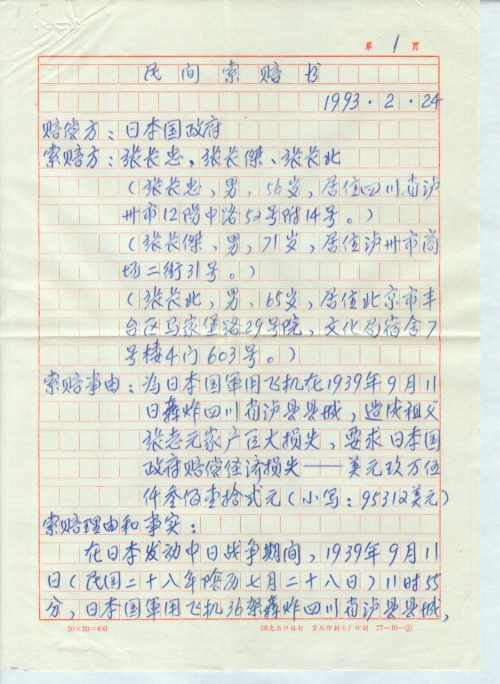 第 1 页
民间索赔书
1993·2·24
赔偿方：日本国政府
索赔方：张长忠，张长傑、张长北
（张长忠，男，56岁，居住四川省泸
州市12阶中路52号附14号。）
（张长傑，男，71岁，居住泸州市商
场二街31号。）
（张长北，男，65岁，居住北京市丰
台区马家堡路29号院，文化局宿舍7
号楼4门603号。）
索赔事由：为日本国軍用飞机在1939年9月11
日轟炸四川省泸县县城，造成祖父
张老元家产巨大损失，要求日本国
政府赔偿经济损失——美元玖万伍
仟叁佰壹拾弍元（小写：95312美元）
索赔理由和事实：
在日本发动中日战争期间，1939年9月11
日（民国二十八年阴历七月二十八日）11时55
分，日本国軍用飞机36架轟炸四川省泸县县城，
20×20=400
重庆印制七厂印制 77-10-②